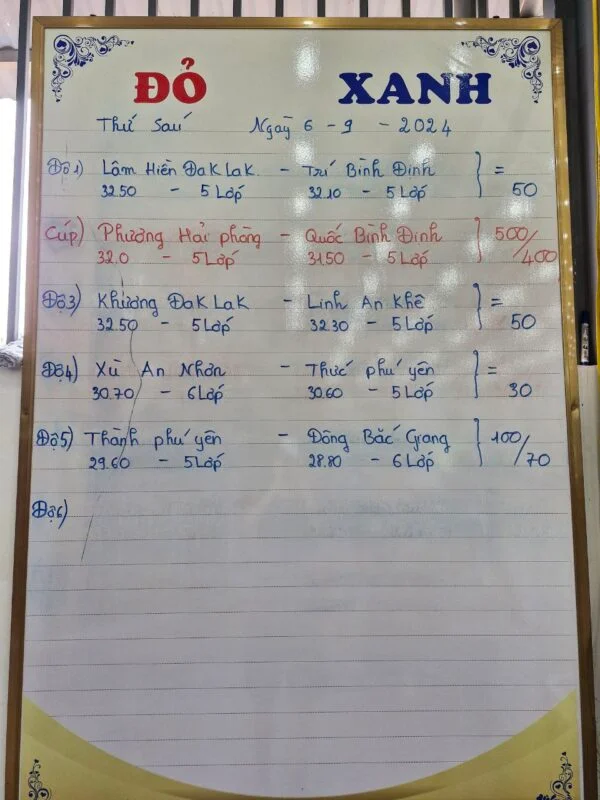 ĐỎ XANH
Thứ Saú Ngaỳ 6 - 9 - 2024
Độ1) Lâm Hiền Đak Lak - Trí Bình Định } =
32.50 - 5 Lớp 32.10 - 5 Lớp 50
Cúp) Phượng Hải phòng - Quốc Bình Định } 500/
32.0 - 5 Lớp 31.50 - 5 Lớp 400
Độ3) Khương Đak Lak - Linh An Khê } =
32.50 - 5 Lớp 32.30 - 5 Lớp 50
Độ4) Xù An Nhơn - Thức phú yên } =
30.70 - 6 Lớp 30.60 - 5 Lớp 30
Độ5) Thành phú yên - Đông Bắc Giang } 100/
29.60 - 5 Lớp 28.80 - 6 Lớp 70
Độ6)